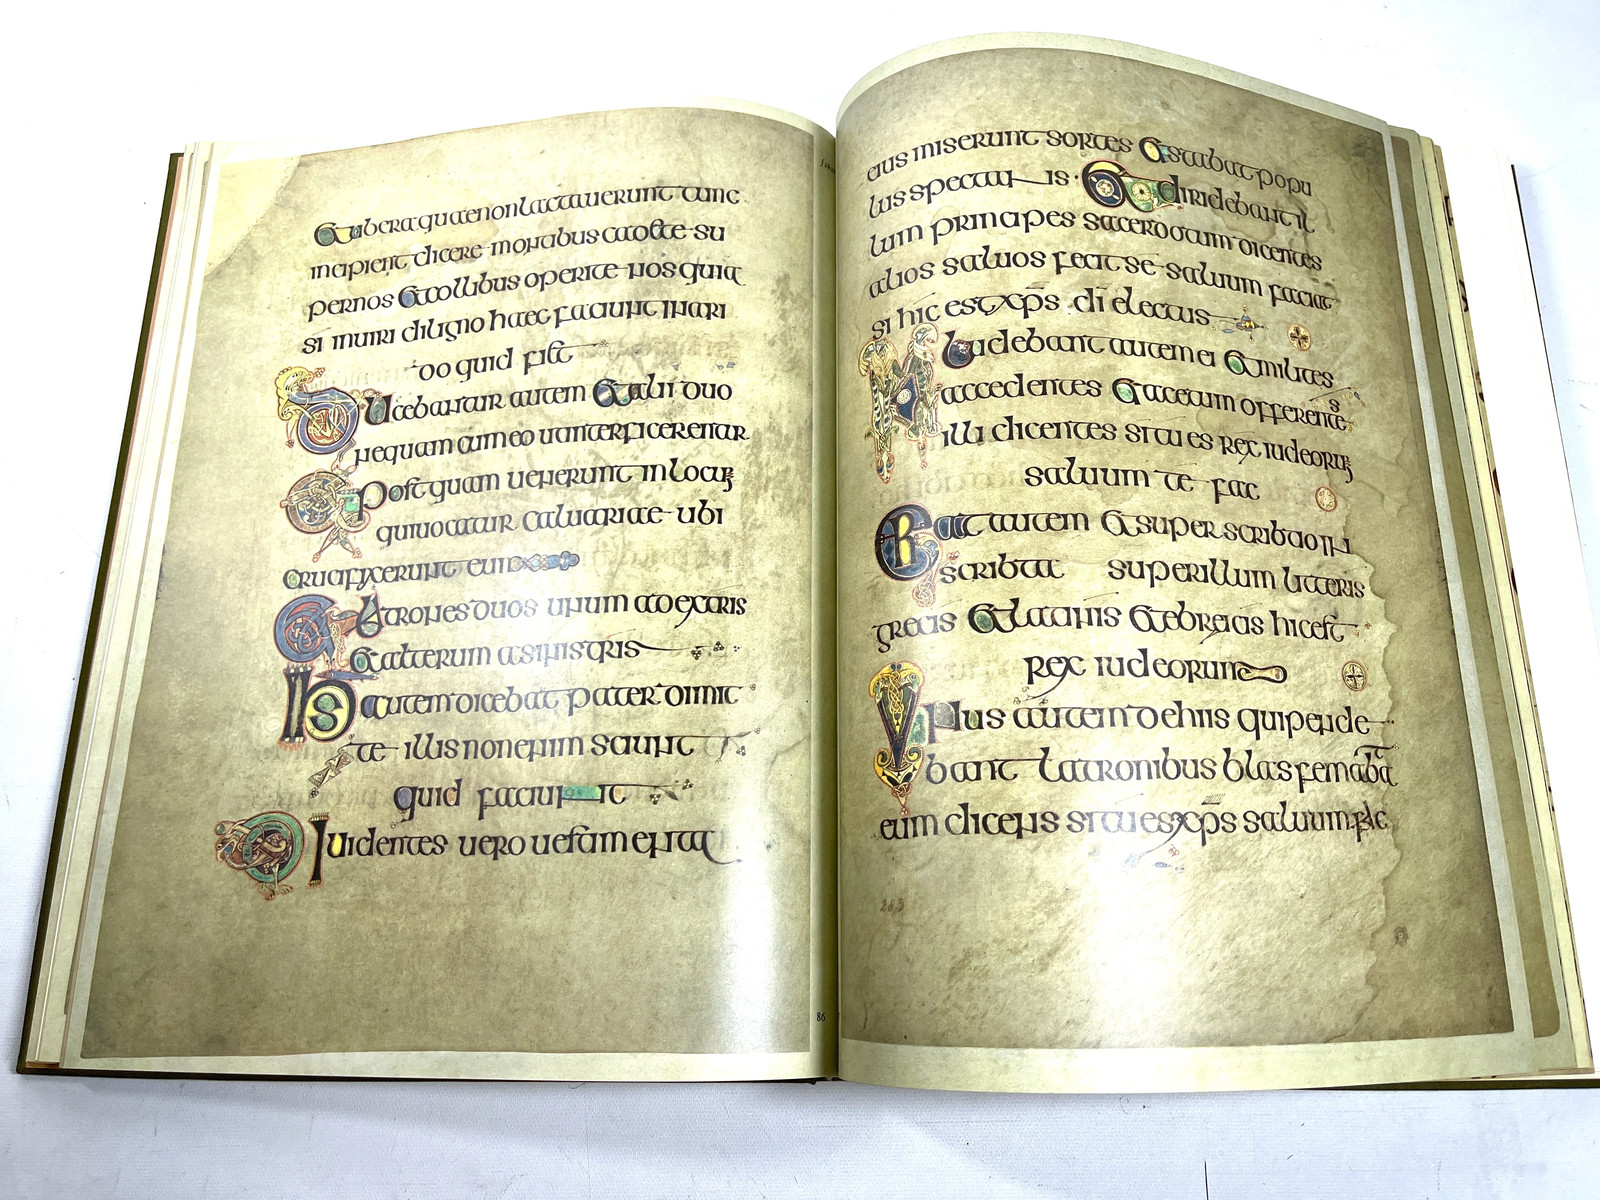 Et ubera quae non lactauerunt tunc
incipient dicere montibus cadite su
per nos et collibus operite nos quia
si in uiri di ligno haec faciunt in ari
do quid fiet
Ducebantur autem et alii duo
nequam cum eo ut interficerentur
Et postquam uenerunt in locum
qui uocatur caluariae ubi
crucifixerunt eum
et latrones duos unum a dextris
et alterum a sinistris
ihs autem dicebat pater dimit
te illis non enim sciunt
quid faciunt
Diuidentes uero uestimenta
86
eius miserunt sortes et stabat popu
lus spectans et diridebant il
lum principes sacerdotum dicentes
alios saluos fecit se saluum faciat
si hic est xps di electus
INludebant autem ei et milites
accedentes et acetum offerentes
illi dicentes si tu es rex iudeorum
saluum te fac
Erat autem et super scribtio in
scribta super illum litteris
grecis et latinis et ebreicis hic est
rex iudeorum
Unus autem de hiis qui pende
bant latronibus blasfemabat
eum dicens si tu es xps saluum fac